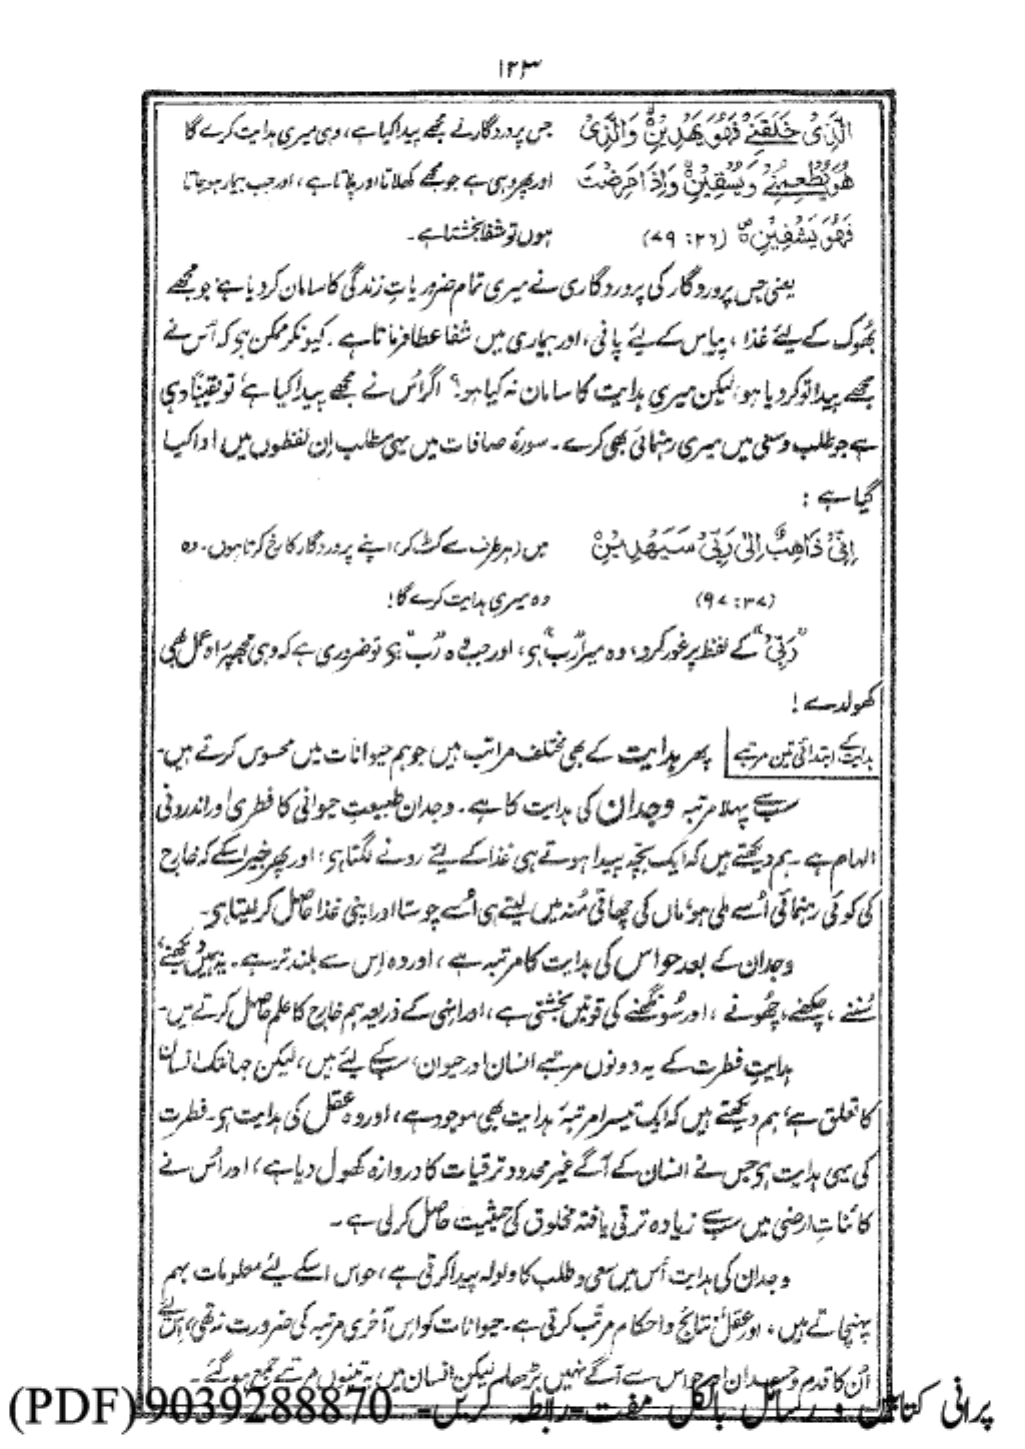 ۱۲۳
الَّذِیْ خَلَقَنِیْ فَهُوَ یَهْدِیْنِ وَالَّذِیْ جس پروردگار نے مجھے پیدا کیا ہے، وہی میری ہدایت کرے گا
هُوَ یُطْعِمُنِیْ وَیَسْقِیْنِ وَاِذَا مَرِضْتُ اور پھر وہی ہے جو مجھے کھلاتا اور پلاتا ہے، اور جب بیمار ہو جاتا
فَهُوَ یَشْفِیْنِ (۲۶: ۷۹) ہوں تو شفا بخشتا ہے۔
یعنی جس پروردگار کی پروردگاری نے میری تمام ضروریاتِ زندگی کا سامان کر دیا ہے، جو مجھے
بھوک کے لیئے غذا، پیاس کے لیئے پانی، اور بیماری میں شفا عطا فرماتا ہے۔ کیونکر ممکن ہی کہ اُس نے
مجھے پیدا تو کر دیا ہو، لیکن میری ہدایت کا سامان نہ کیا ہو؟ اگر اُس نے مجھے پیدا کیا ہے تو یقیناً وہی
ہے جو طلب و سعی میں میری رہنمائی بھی کرے۔ سورۂ صافات میں یہی مطلب اِن لفظوں میں ادا کیا
گیا ہے :
اِنِّیْ ذَاهِبٌ اِلٰی رَبِّیْ سَیَهْدِیْنِ میں (ہر طرف سے کٹ کر) اپنے پروردگار کا رخ کرتا ہوں۔ وہ
(۳۷: ۹۷) وہ میری ہدایت کرے گا!
"رَبِّیْ" کے لفظ پر غور کرو، وہ میرا "رب" ہی، اور جب وہ "رب" ہی تو ضروری ہے کہ وہی مجھ پر راہ عمل بھی
کھولدے!
ہدایت کے ابتدائی تین مرتبے پھر ہدایت کے بھی مختلف مراتب ہیں جو ہم حیوانات میں محسوس کرتے ہیں۔
سب سے پہلا مرتبہ وجدان کی ہدایت کا ہے۔ وجدان طبیعتِ حیوانی کا فطری اور اندرونی
الہام ہے۔ ہم دیکھتے ہیں کہ ایک بچّہ پیدا ہوتے ہی غذا کے لیئے رونے لگتا ہی؛ اور پھر بغیر اسکے کہ خارج
کی کوئی رہنمائی اُسے ملی ہو، ماں کی چھاتی مُنہ میں لیتے ہی اُسے چوستا اور اپنی غذا حاصل کر لیتا ہی۔
وجدان کے بعد حواس کی ہدایت کا مرتبہ ہے، اور وہ اِس سے بلند تر ہے۔ یہ ہمیں دیکھنے،
سُننے، چکھنے، چھونے، اور سُونگھنے کی قوتیں بخشتی ہے، اور انہی کے ذریعہ ہم خارج کا علم حاصل کرتے ہیں۔
ہدایتِ فطرت کے یہ دونوں مرتبے انسان اور حیوان، سب کے لیئے ہیں، لیکن جہانتک انسان
کا تعلق ہے، ہم دیکھتے ہیں کہ ایک تیسرا مرتبۂ ہدایت بھی موجود ہے، اور وہ عقل کی ہدایت ہی۔ فطرت
کی یہی ہدایت ہی جس نے انسان کے آگے غیر محدود ترقیات کا دروازہ کھول دیا ہے، اور اُس نے
کائناتِ ارضی میں سب سے زیادہ ترقی یافتہ مخلوق کی حیثیت حاصل کر لی ہے۔
وجدان کی ہدایت اُس میں سعی و طلب کا ولولہ پیدا کرتی ہے، حواس اسکے لیئے معلومات بہم
پہنچاتے ہیں، اور عقل نتائج و احکام مرتّب کرتی ہے۔ حیوانات کو اِس آخری مرتبہ کی ضرورت نہ تھی، اس لیئے
اُن کا قدم وجدان اور حواس سے آگے نہیں بڑھا۔ لیکن انسان میں یہ تینوں مرتبے جمع ہو گئے۔
پرانی کتابیں و رسائل بالکل مفت۔رابطہ کریں۔ 9039288870(PDF)